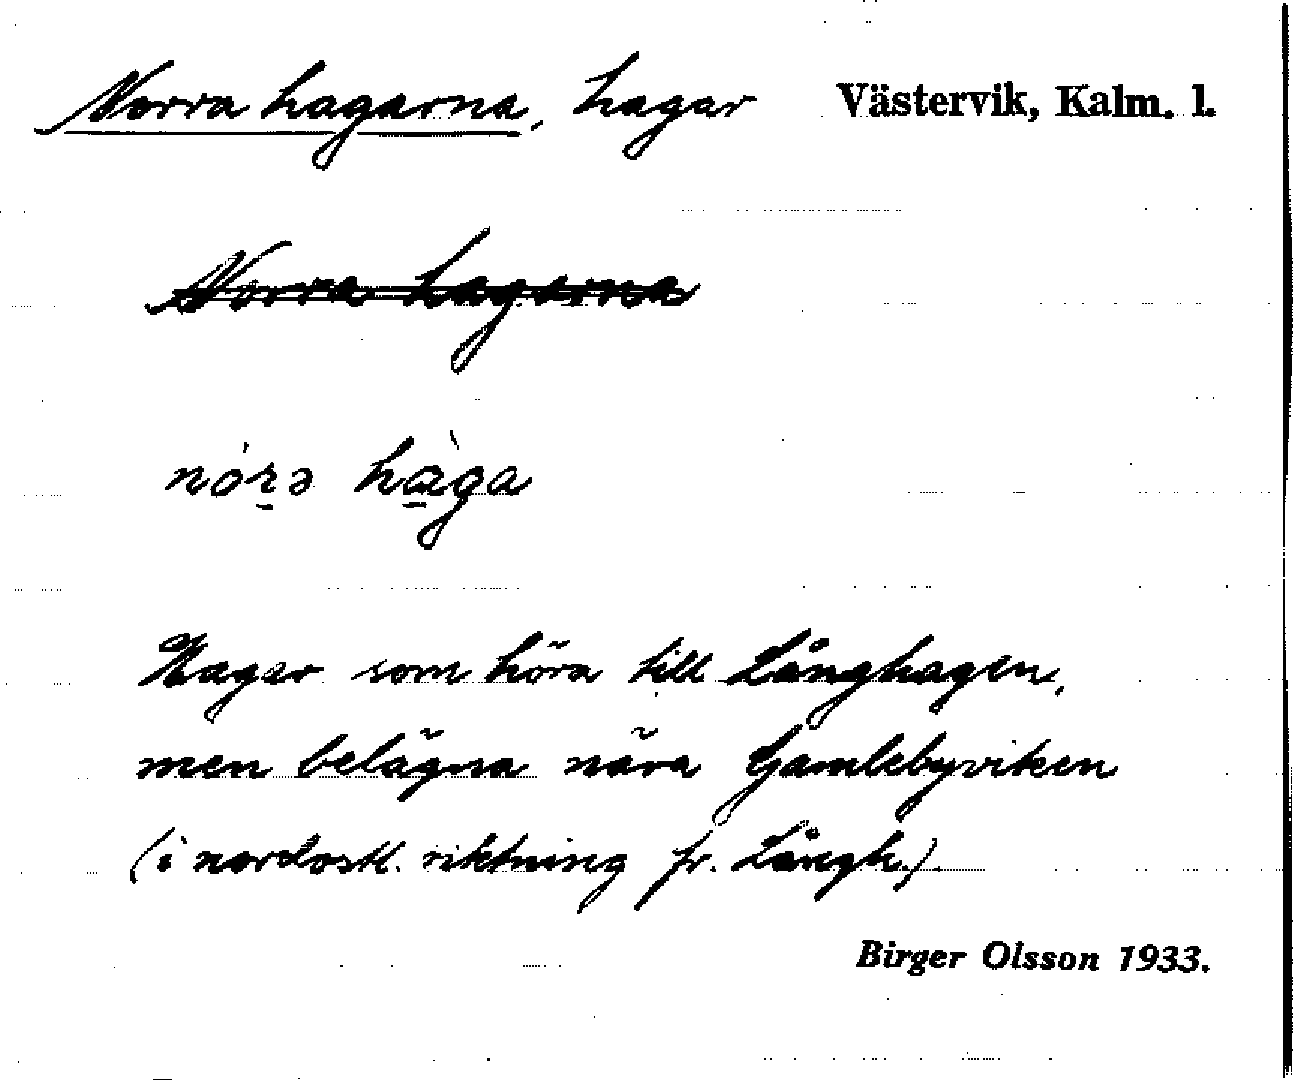 Norra hagarna, hagar Västervik, Kalm. l.
Norra hagarna
nórə hàga
Hagar som höra till Långhagen,
men belägna nära Gamlebyviken
(i nordostl. riktning fr. Långh.).
Birger Olsson 1933.